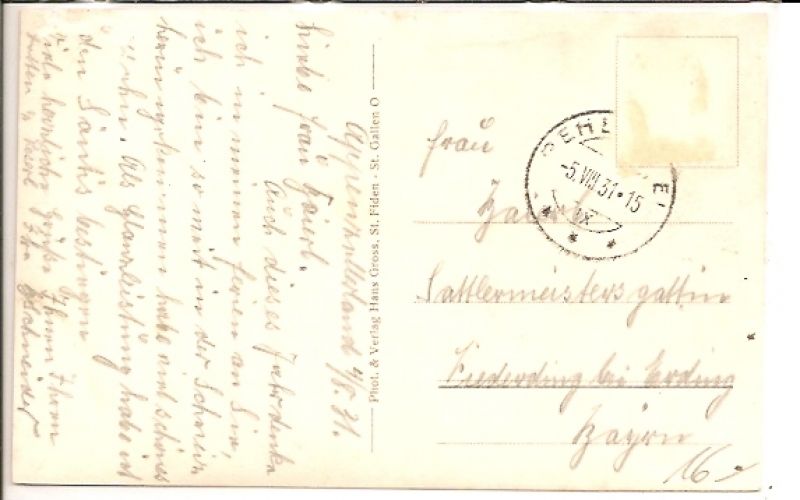 Appenzellerland 4/8. 31.
Liebe Frau
Auch dieses Jahr denke
ich in meinen Ferien an Sie,
ich bin so weit in der Schweiz
herum gekommen habe viel schönes
gesehn. Als Glanzleistung habe ich
den Säntis bestiegen
Viele herzliche Grüße Ihnen Ihrem
Ihr
Phot. & Verlag Hans Gross, St. Fiden - St. Gallen O
-5.VIII.31·15
Frau
Sattlermeistersgattin
bei Erding
Bayern
16